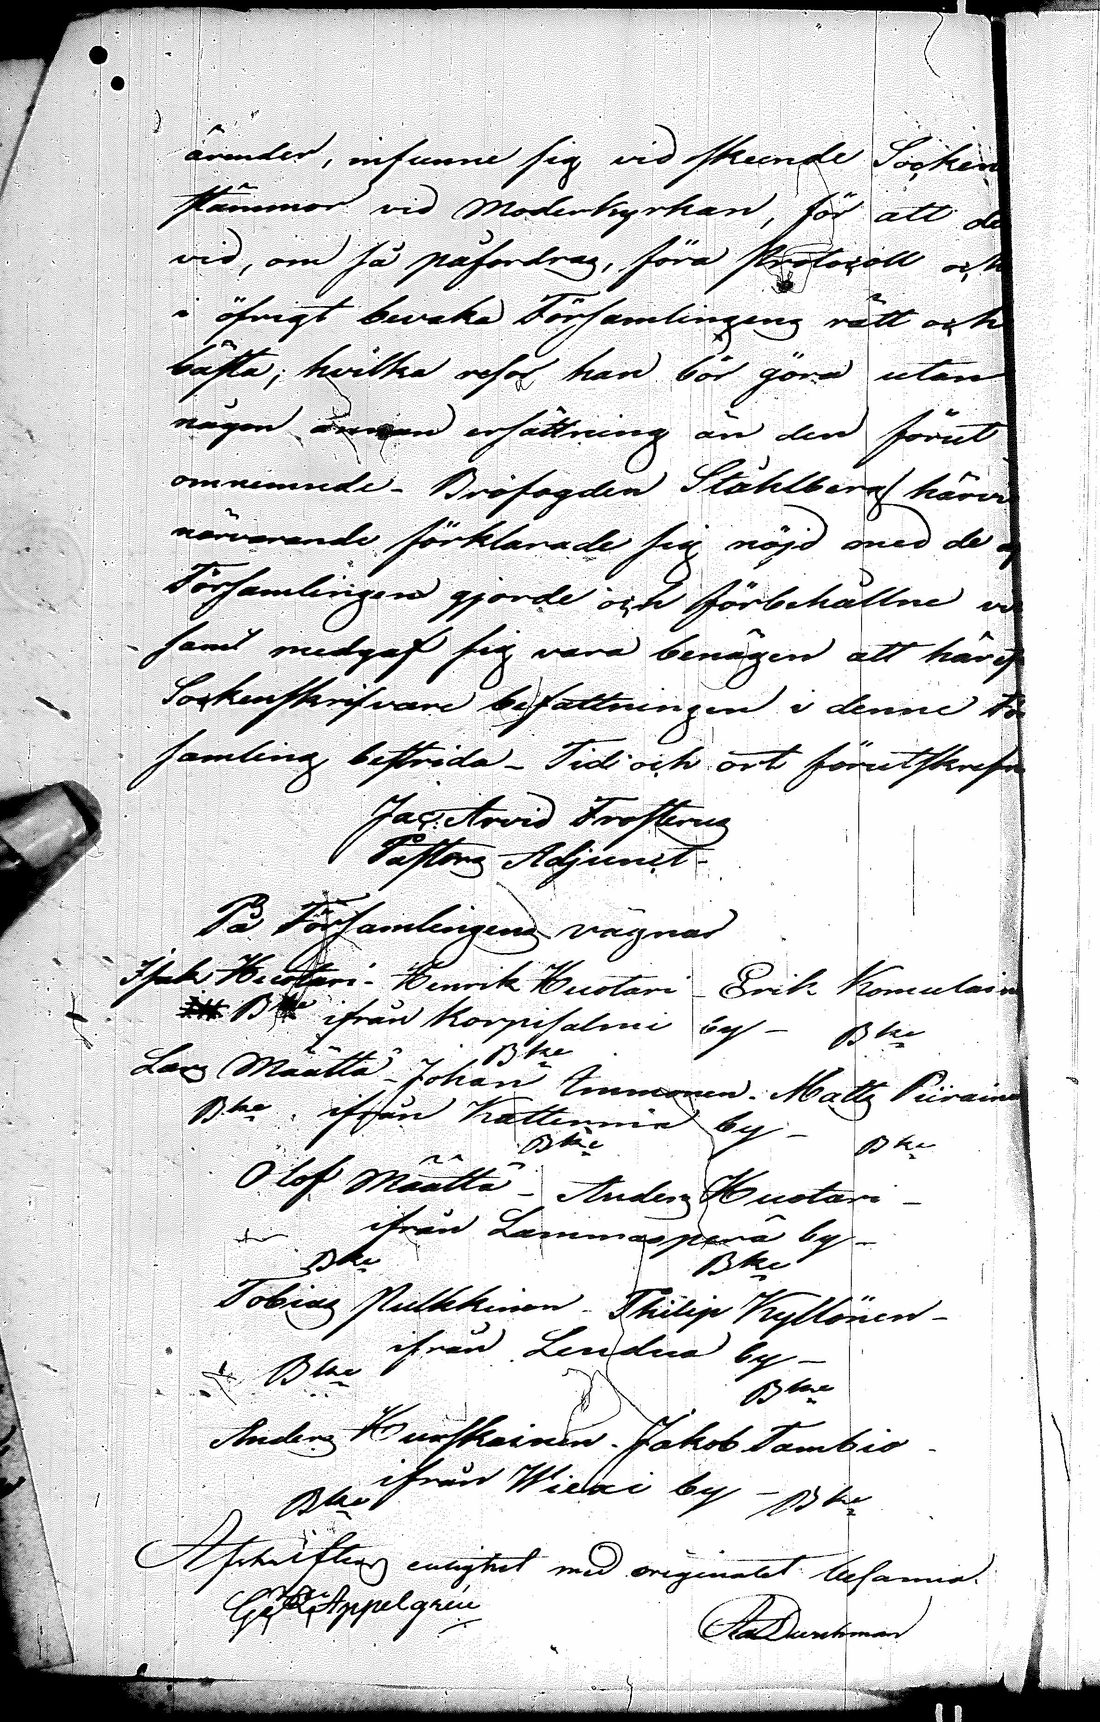 ärender, infinne sig vid skeende Socken
stämmor vid Moderkyrkan, för att de
vid, om så påfordras, föra Protocoll och
i öfrigt bevaka Församlingens rätt och
bästa; hvilka resor han bör göra utan
någon annan ersättning än den förut
omnemnde - Brofogden Ståhlberg härvi
närvarande förklarade sig nöjd med de af
Församlingen gjorde och förbehållne
samt medgaf sig vara benägen att häref
Sockenskrifvare befattningen i denne För
samling bestrida - Tid och ort förutskrefne
Jac. Arvid Frosterus
Pastors Adjunct -
På Församlingens vägnar
Isak Huotari - Henrik Huotari - Erik Komulain
Bke ifrån Korpisalmi by - Bke
Bke
Lars Määttä - Johan Immonen - Matts Piiraine
Bke ifrån Kattermia by -
Bke Bke
Olof Määttä - Anders Huotari -
ifrån Lammasperä by -
Bke Bke
Tobias Pulkkinen - Philip Kyllönen -
ifrån Lendua by -
Bke Bke
Anders Kurskainen - Jakob Tambio -
ifrån Wiexi by - Bke
Bke
Afskriftens enlighet med originalet besanna.
Appelgrén